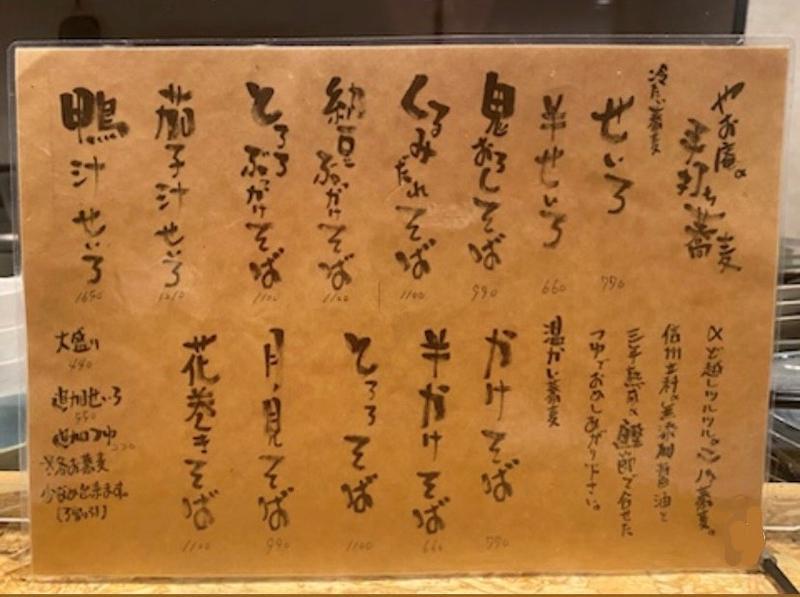 やお庵。
手打ち蕎麦
冷たい蕎麦
せいろ
770
半せいろ
660
鬼おろしそば
990
くるみだれそば
1100
納豆ぶっかけそば
1100
とろろぶっかけそば
1100
茄子汁せいろ
1210
鴨汁せいろ
1650
のど越しツルツル。二八蕎麦。
信州
無添加醤油と
三年熟成鰹節で合せた
つゆでおめしあがり下さい。
温かい蕎麦
かけそば
770
半かけそば
660
とろろそば
1100
月見そば
990
花巻きそば
1100
大盛り
440
追加せいろ
550
追加つゆ
220
※各お蕎麦
少なめ出来ます。